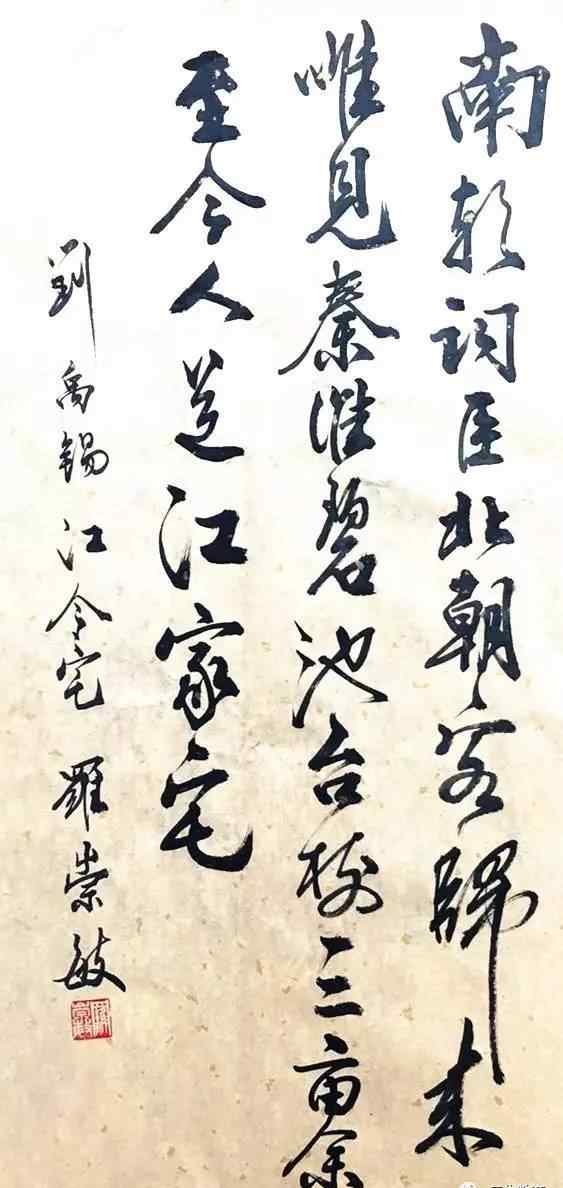 南朝詞臣北朝客歸来
唯見秦淮碧池台树三亩余
至今人道江家宅
劉禹錫江令宅 羅崇敏